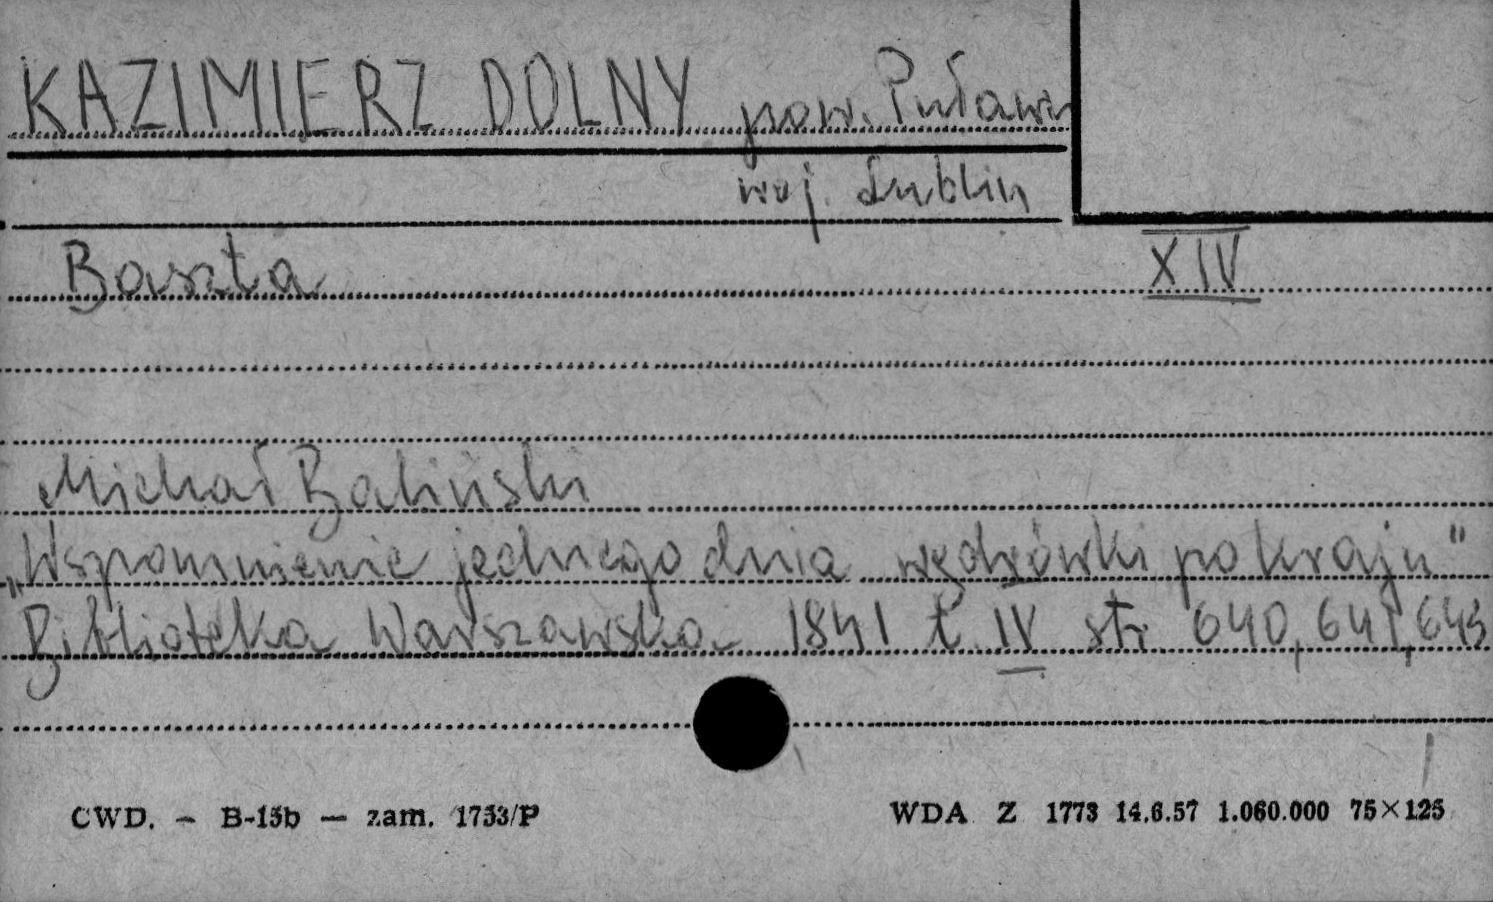 KAZIMIERZ DOLNY pow. Puławy
woj. Lublin
Baszta XIV
Michał Baliński
„Wspomnienie jednego dnia wędrówki po kraju"
Biblioteka Warszawska 1841 t. IV str. 640, 641, 643
CWD. – B-15b — zam. 1753/P WDA Z 1773 14.6.57 1.060.000 75×125